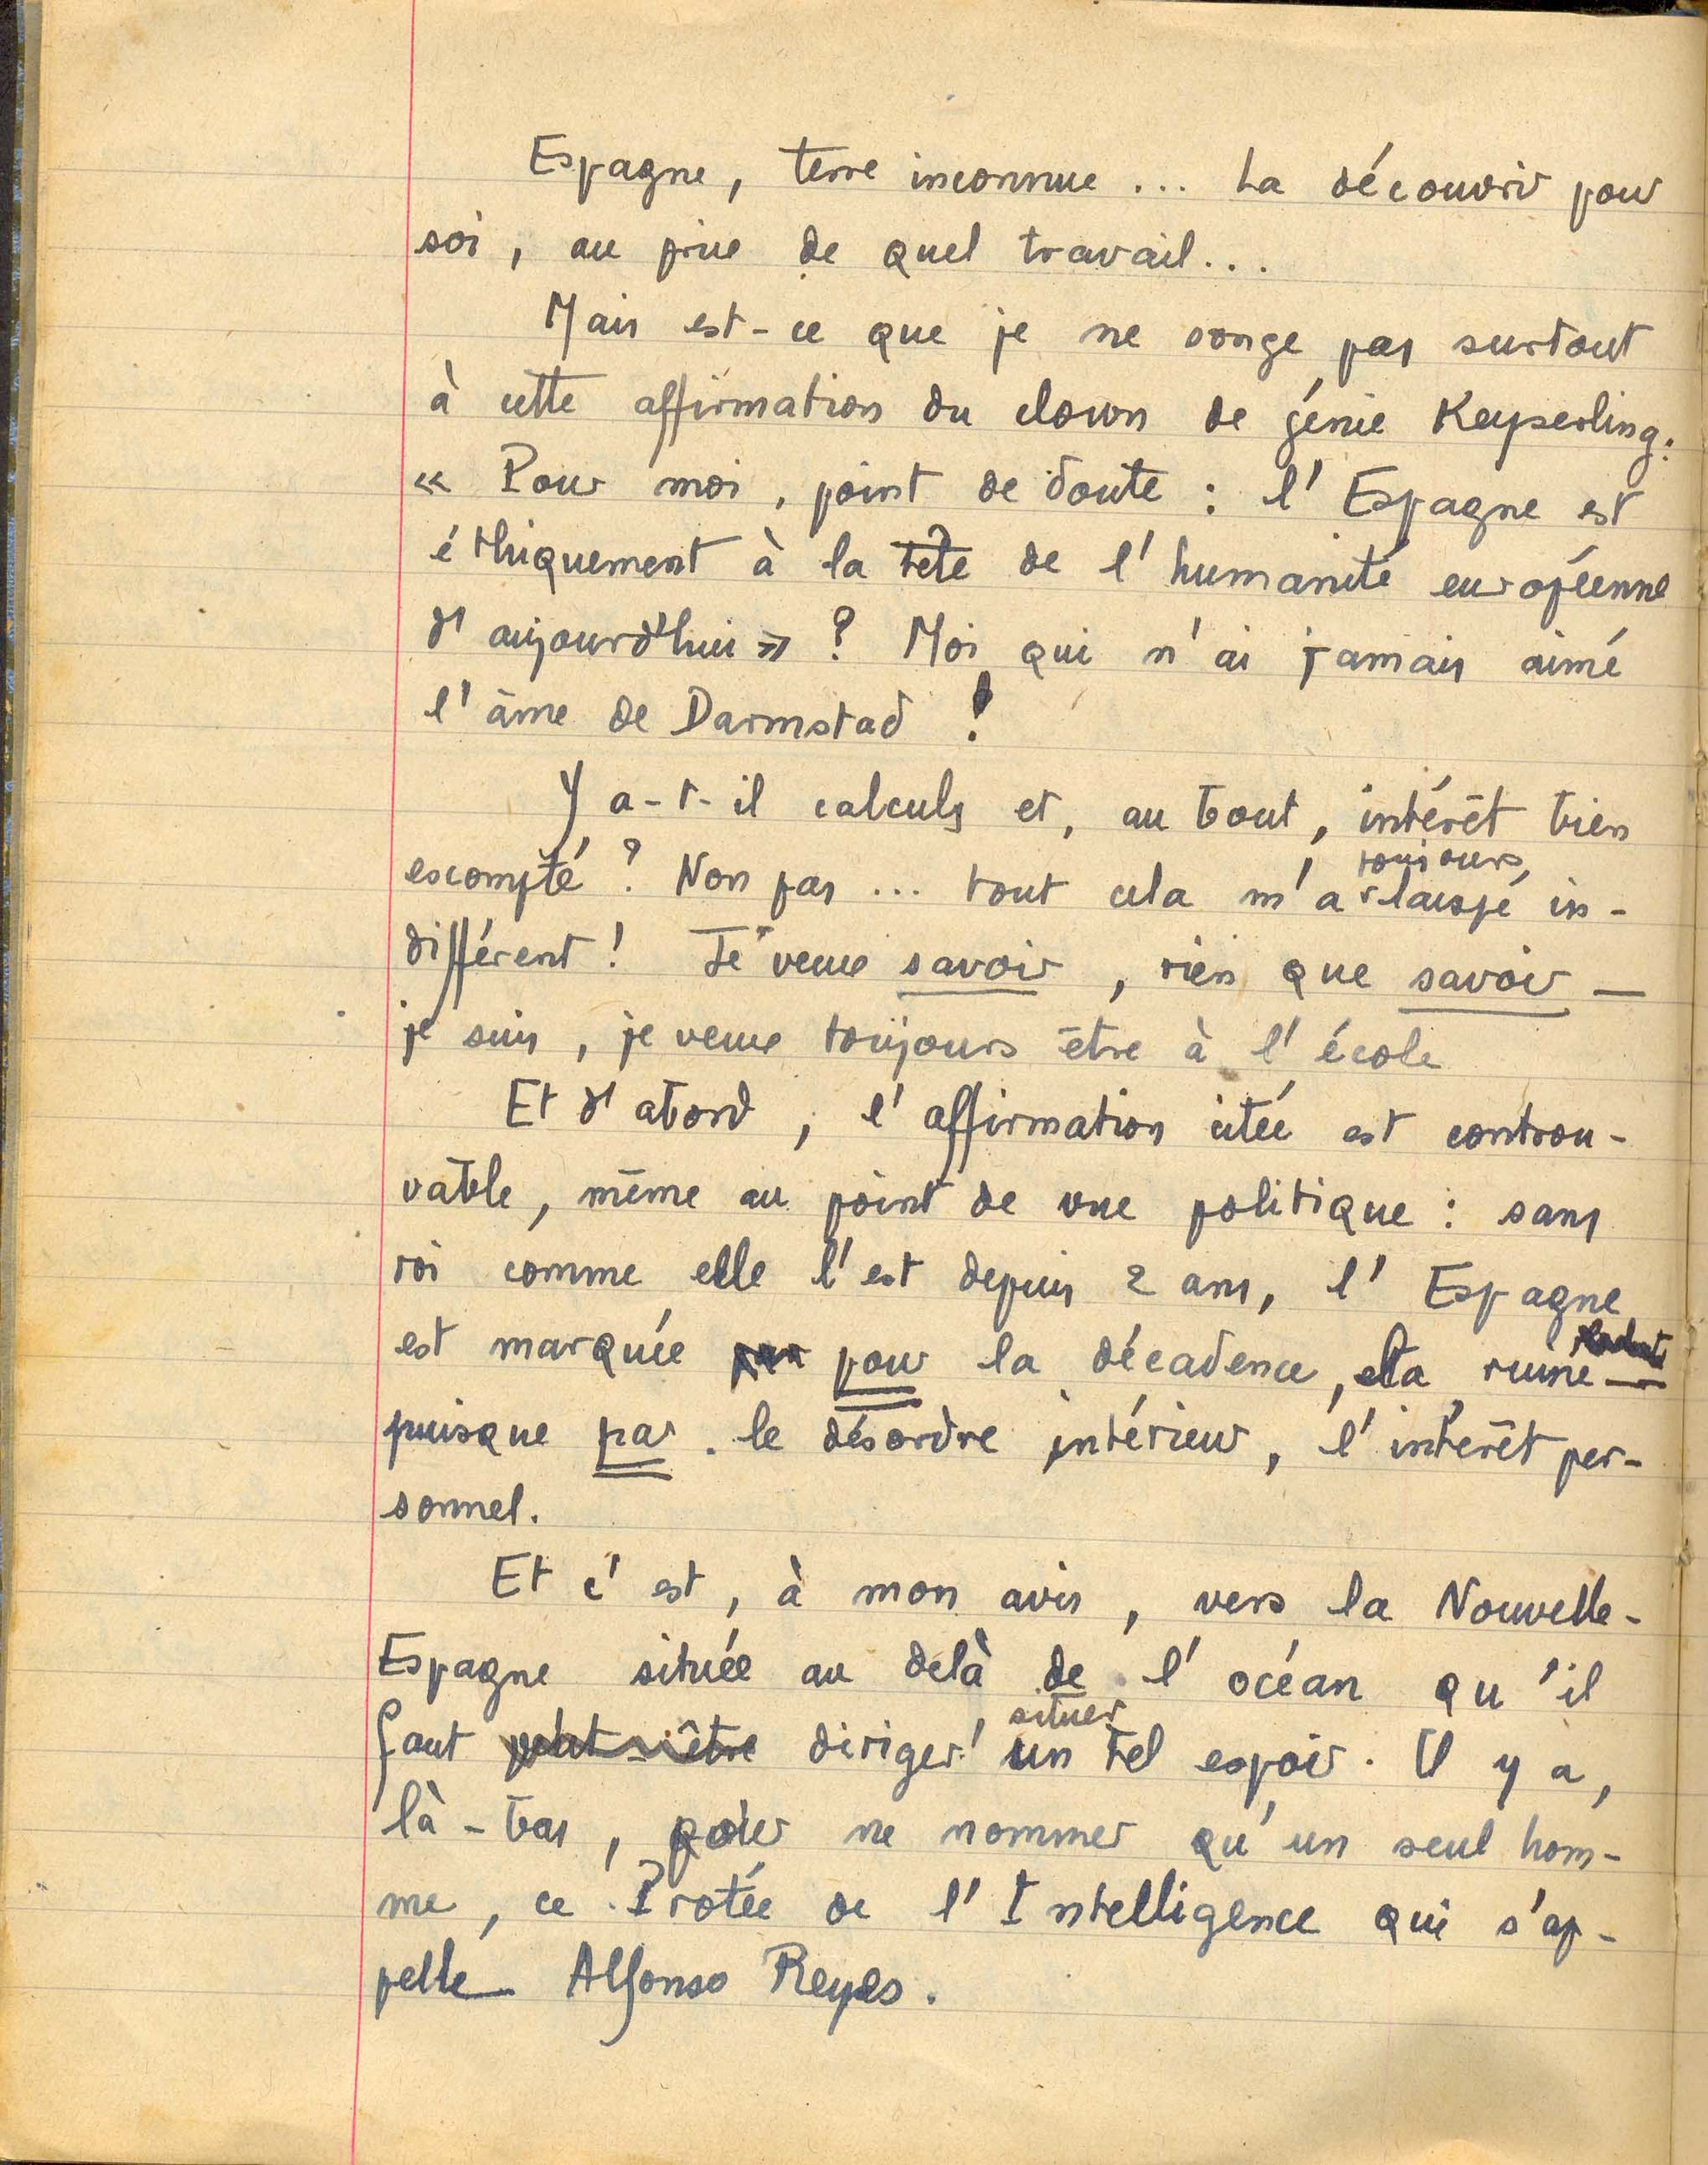 Espagne, terre inconnue ... La découvrir pour
soi, au prix de quel travail...
Mais est-ce que je ne songe pas surtout
à cette affirmation du clown de génie Keyserling :
« Pour moi, point de doute : l'Espagne est
éthiquement à la tête de l'humanité européenne
d'aujourd'hui » ? Moi qui n'ai jamais aimé
l'âme de Darmstad !
Y a-t-il calculs et, au bout, intérêt bien
escompté ? Non pas ... tout cela m'a toujours laissé in-
différent ! Je veux savoir, rien que savoir —
je suis, je veux toujours être à l'école
Et d'abord, l'affirmation citée est controu-
vable, même au point de vue politique : sans
roi comme elle l'est depuis 2 ans, l'Espagne
est marquée pour la décadence, la ruine —
puisque par le désordre intérieur, l'intérêt per-
sonnel.
Et c'est, à mon avis, vers la Nouvelle-
Espagne située au delà de l'océan qu'il
faut peut-être diriger, situer un tel espoir. Il y a,
là-bas, pour ne nommer qu'un seul hom-
me, ce Protée de l'Intelligence qui s'ap-
pelle Alfonso Reyes.